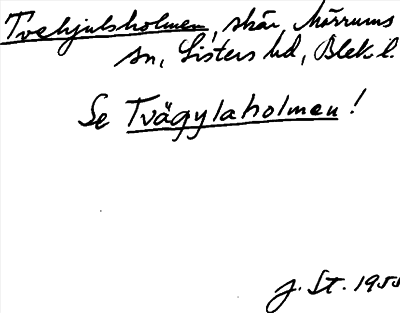 Tvehjulsholmen, skär, Mörrums
sn, Listers hd, Blek. l.
Se Tvägylaholmen!
J. St. 1955